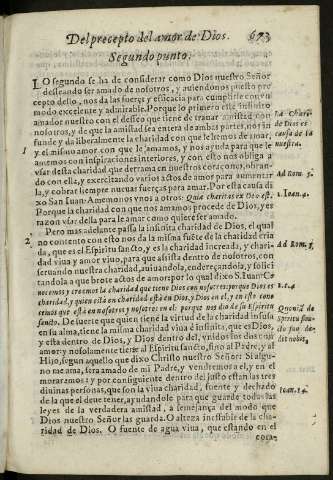 Del precepto del amor de Dios. 673
Segundo punto;
LO segundo se ha de considerar como Dios nuestro Señor
desseando ser amado de nosotros, y auiendonos puesto pre
cepto dello, nos da las fuerças y efficacia para cumplirle con vn
modo excelente y admirable. Porque lo primero este infinito
amador nuestro con el desseo que tiene de trauar amistad con
nosotros, y de que la amistad sea entera de ambas partes, nos in
funde y da liberalmente la charidad con que le hemos de amar,
1 y el mismo amor con que le amamos, y nos ayuda para que le
amemos con inspiraciones interiores, y con esto nos obliga a
vsar desta charidad que derrama en nuestros coraçones, obran-
do con ella, y exercitando varios actos de amor para aumentar
la, y cobrar siempre nueuas fuerças para amar. Por esta causa di
xo San Iuan: Amemonos vnos a otros: Quia charitas ex Deo est.
Porque la charidad con que nos amamos procede de Dios, y es
razon vsar della para le amar como quiere ser amado.
2 Pero mas adelante passa la infinita charidad de Dios, el qual
no contento con esto nos da la misma fuente de la charidad cria
da, que es el Espiritu sancto, y es la charidad increada, y chari-
dad viua y amor viuo, para que assista dentro de nosotros, con
seruando nuestra charidad, auiuandola, endereçandola, y solici
tandola a que brote actos de amor por lo qual dixo S. Iuan: Co
nocemos y creemos la charidad que tiene Dios con nosotros: porque Dios es
charidad, y quien està en charidad està en Dios, y Dios en el, y en esto cono
cemos que està en nosotros y nosotros en el: porque nos dio de su Espiritu
sancto. De suerte que quien tiene la virtud de la charidad infusa
en su alma, tiene la misma charidad viua è infinita, que es Dios,
y esta dentro de Dios, y Dios dentro del, vnidos los dos con
amor: y no solamente tiene al Espiritu sancto, sino al Padre, y al
Hijo, segun aquello que dixo Christo nuestro Señor: Si algu-
no me ama, sera amado de mi Padre, y vendremos a el, y en el
moraremos: y por consiguiente dentro del justo estan las tres
diuinas personas, que son la viua charidad, fuente y dechado
de la que el deue tener, ayudandole para que guarde todas las
leyes de la verdadera amistad, a semejança del modo que
Dios nuestro Señor las guarda. O alteza inefable de la cha-
ridad de Dios. O fuente de agua viua, que estando en el
cora-
La Chari
dad de Dios es
causa de la
nuestra.
Ad Rom. 5.
1. Ioan. 4.
Ad Rom. 5.
Ioan. 14.